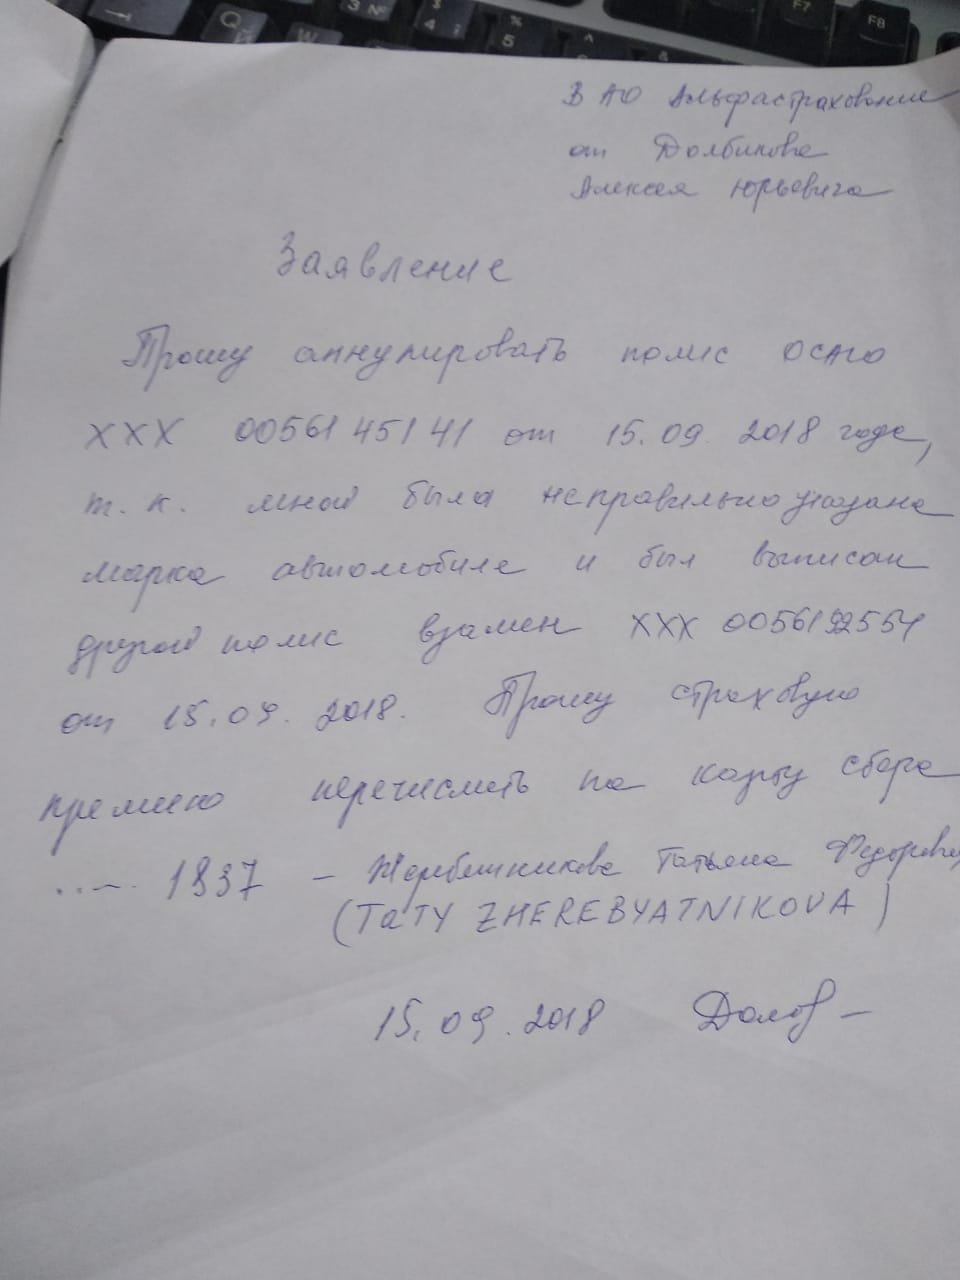 Q
W
3 №
$
4 ;
%
5
^
&
F7
F8
В АО Альфастрахование
от Долбилова
Алексея Юрьевича
Заявление
Прошу аннулировать полис ОСАГО
ХХХ 0056145141 от 15.09.2018 года,
т.к. мной была неправильно указана
марка автомобиля и был выписан
другой полис взамен ХХХ 0056192554
от 15.09.2018. Прошу страховую
премию перечислить на карту сбера
....-- 1837 – Жеребятникова Татьяна Федоровна
(TaTY ZHEREBYATNIKOVA)
15.09.2018